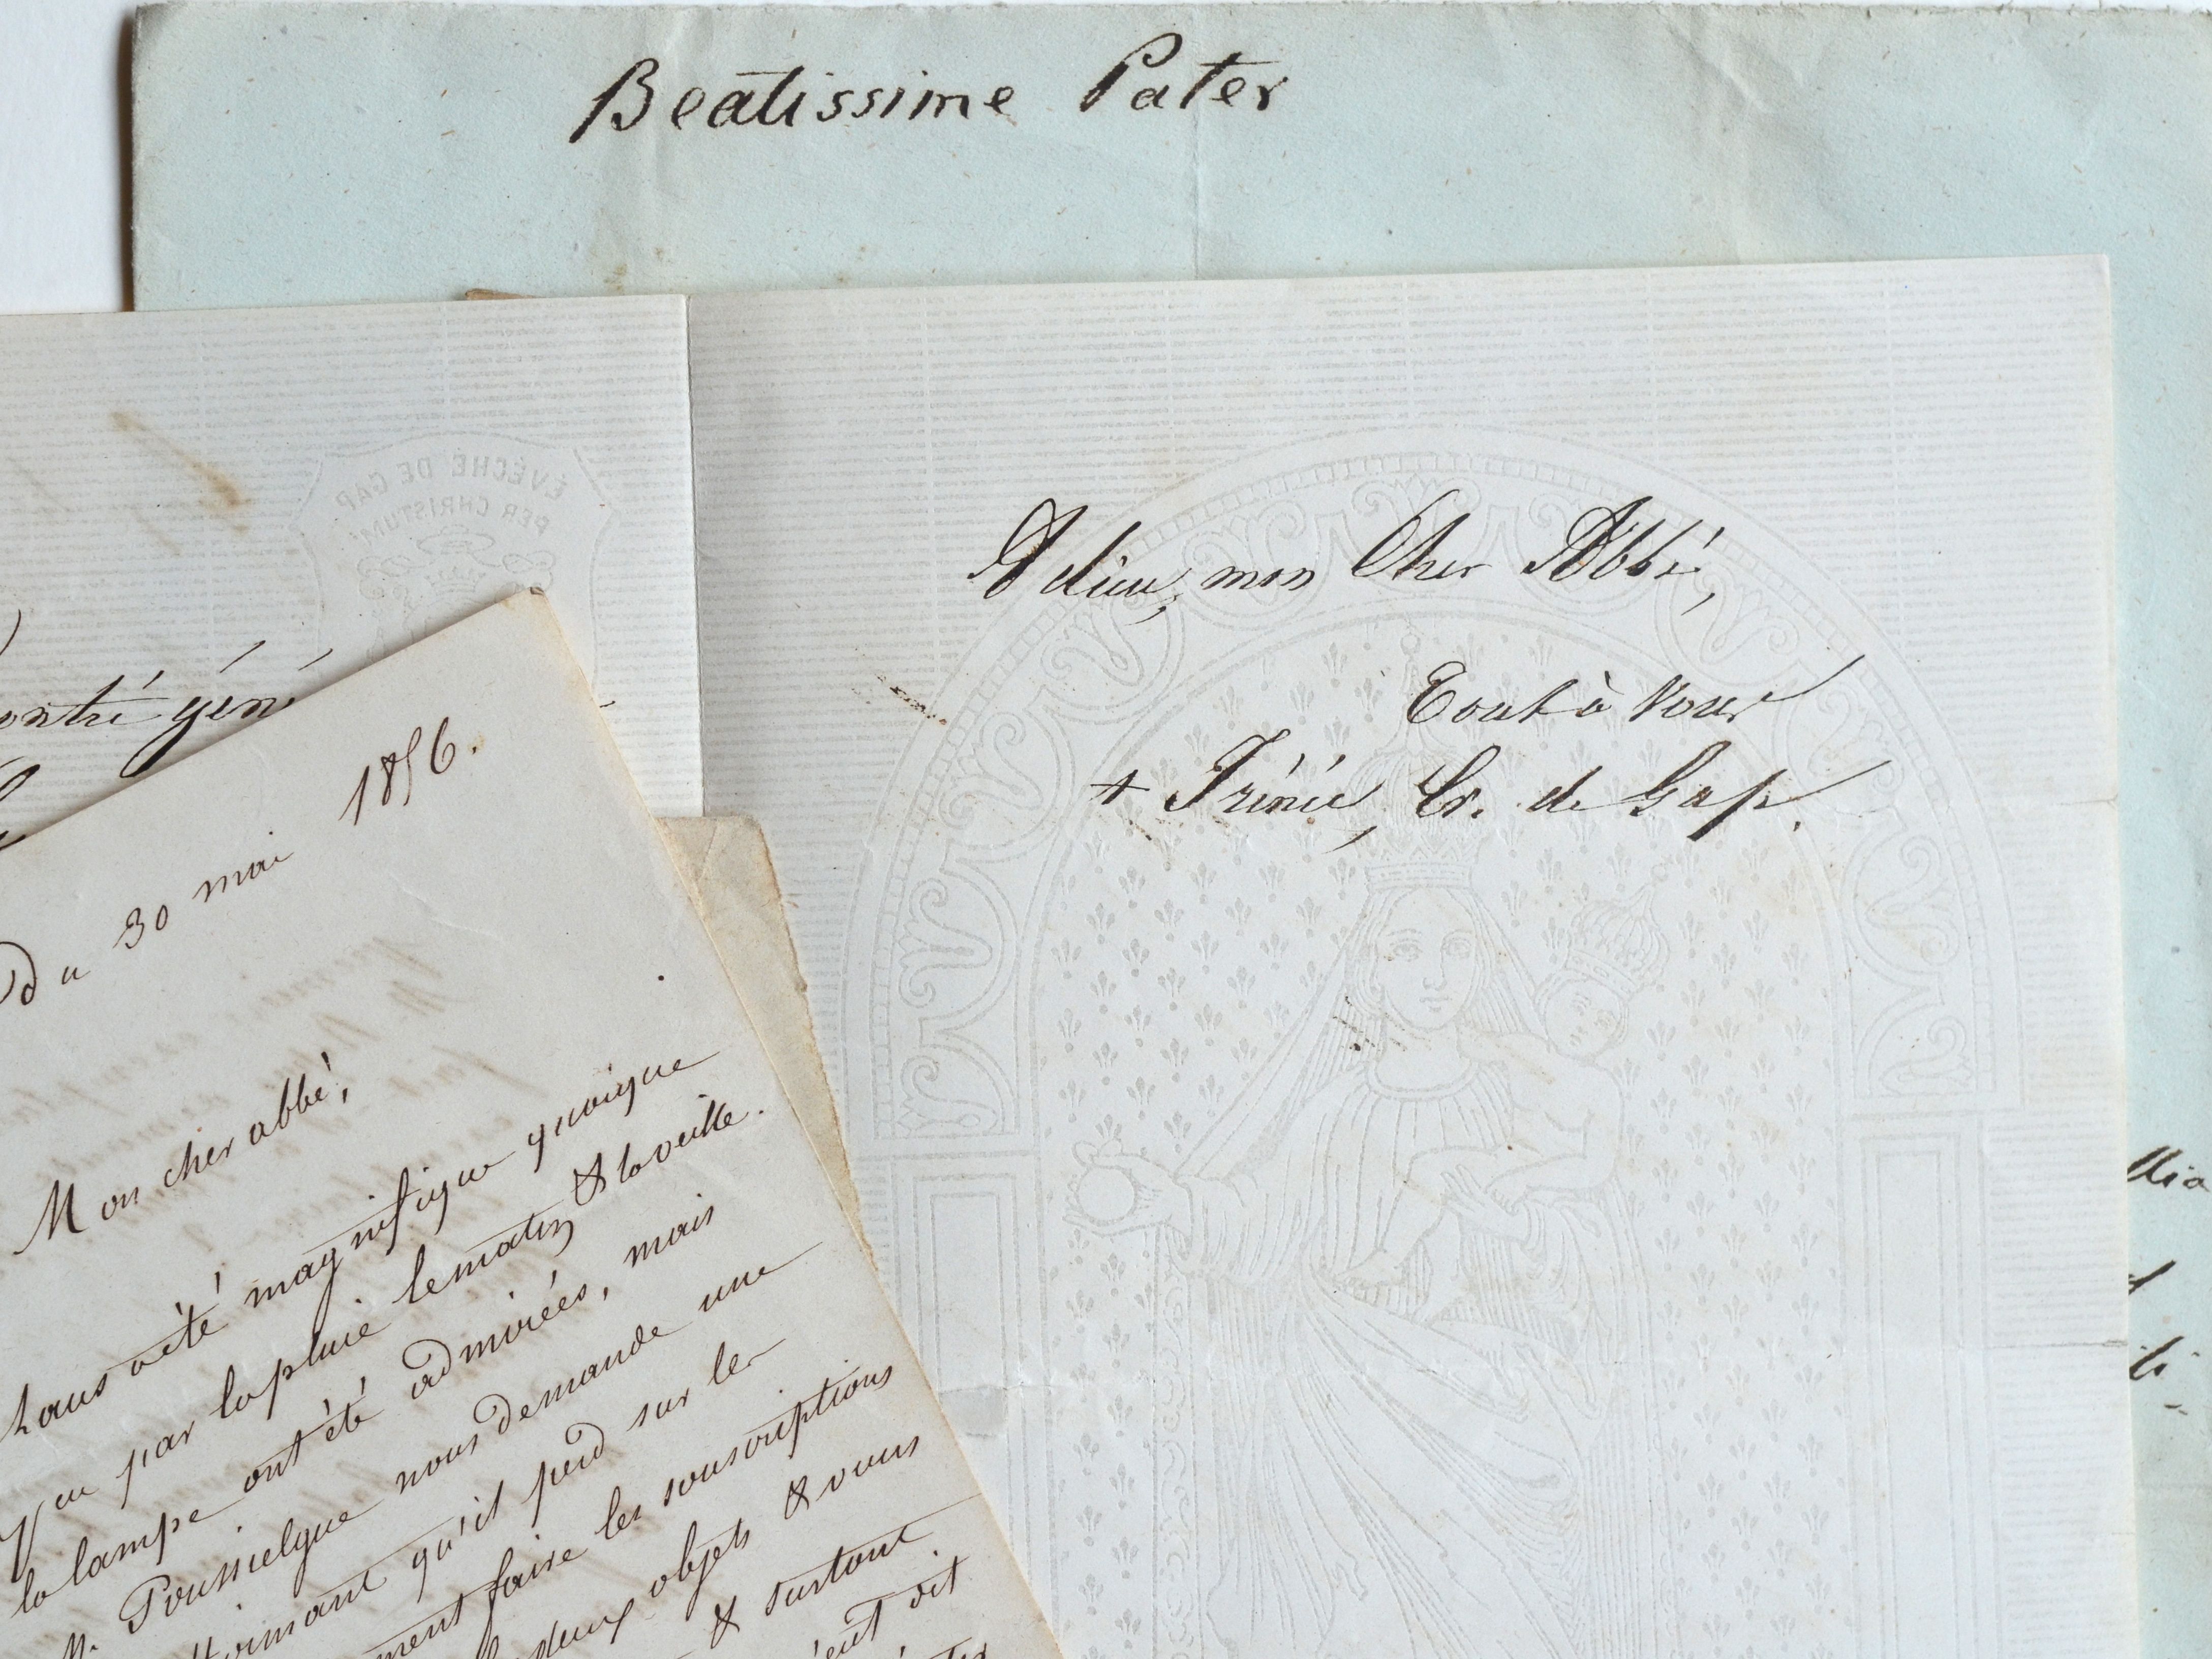 Beatissime Pater
ÉVÊCHÉ DE GAP
PER CHRISTUM
Adieu, mon Cher Abbé,
Tout à vous
+ Irénée, Ev. de Gap.
Du 30 mai 1856.
Mon cher abbé,
a été magnifique quoique
par la pluie le matin & la veille.
la lampe ont été admirées, mais
M. Poussielgue nous demande une
qu'il perd sur les
faire les souscriptions
deux objets & vous
& surtout
eût dit